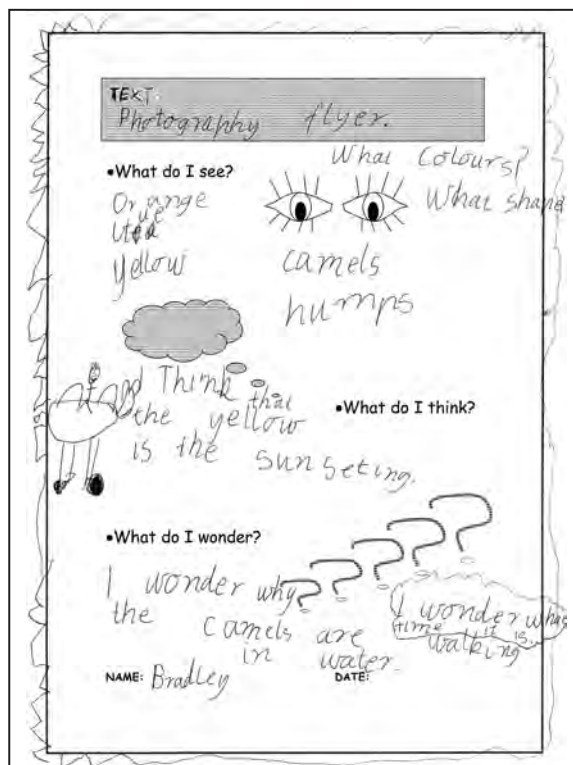 TEXT:
Photography flyer.
What Colours?
•What do I see?
What shape
Orange
yellow
camels
humps
I Think that
the yellow
is the sun seting.
•What do I think?
•What do I wonder?
I wonder why
the camels are
in water.
I wonder what
time it is.
walking
NAME: Bradley
DATE: